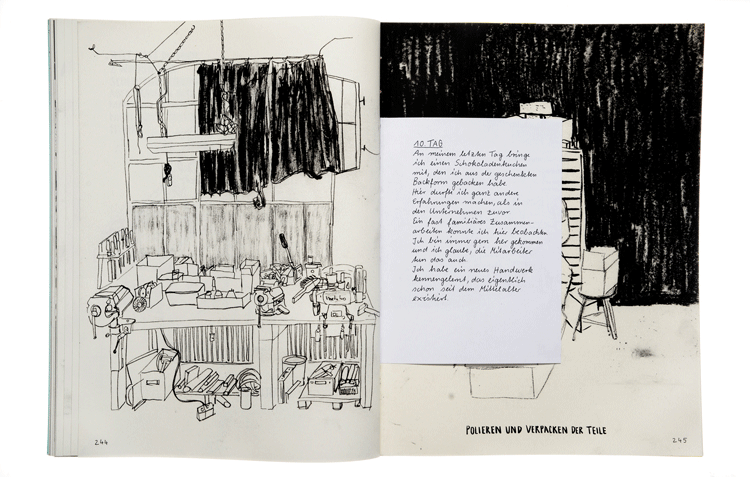 244
10. TAG
An meinem letzten Tag bringe
ich einen Schokoladenkuchen
mit, den ich aus der geschenkten
Backform gebacken habe.
Hier durfte ich ganz andere
Erfahrungen machen, als in
den Unternehmen zuvor.
Ein fast familiäres Zusammen-
arbeiten konnte ich hier beobachten.
Ich bin immer gern her gekommen
und ich glaube, die Mitarbeiter
tun das auch.
Ich habe ein neues Handwerk
kennengelernt, das eigentlich
schon seit dem Mittelalter
existiert.
POLIEREN UND VERPACKEN DER TEILE
245